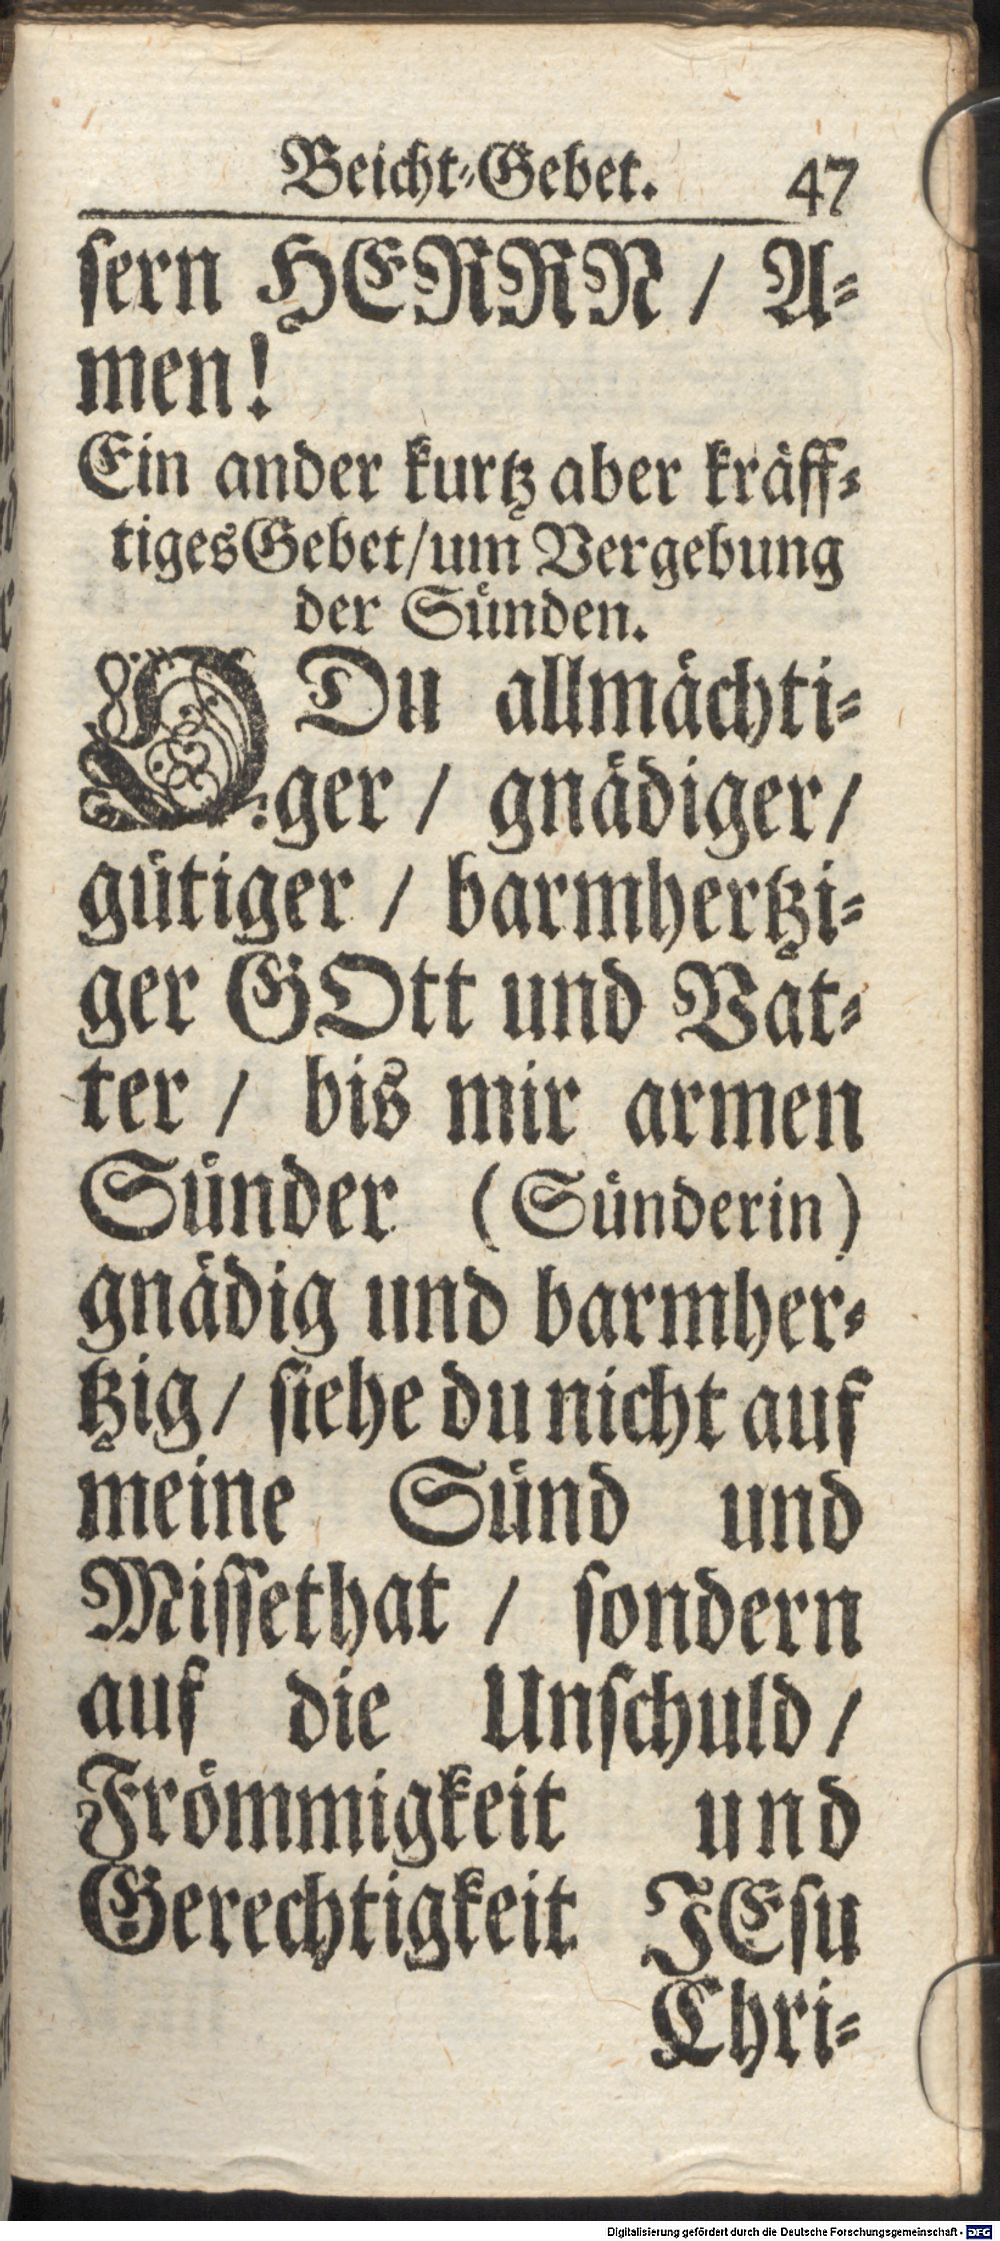 Beicht-Gebet. 47
sern HERRN / A-
men!
Ein ander kurtz aber kräff-
tiges Gebet/um Vergebung
der Sünden.
O Du allmächti-
ger / gnädiger/
gütiger / barmhertzi-
ger GOtt und Vat-
ter / bis mir armen
Sünder (Sünderin)
gnädig und barmher-
tzig/ siehe du nicht auf
meine Sünd und
Missethat / sondern
auf die Unschuld/
Frömmigkeit und
Gerechtigkeit JEsu
Chri-
Digitalisierung gefördert durch die Deutsche Forschungsgemeinschaft - DFG